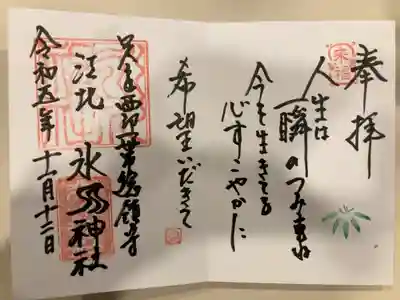 奉拝
人生は
一瞬のつみかさね
今を生きてる
心すこやかに
希望いだきて
足立西部一帯総鎮守
江北 氷川神社
令和五年 十一月十二日